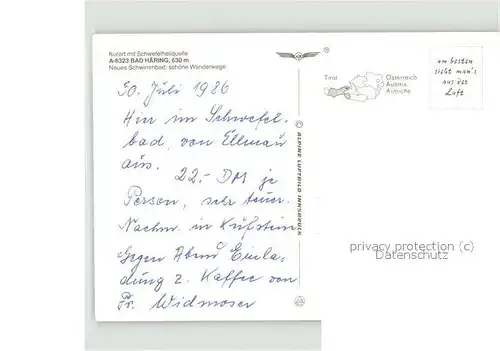 Kurort mit Schwefelheilquelle
A-6323 BAD HÄRING, 630 m
Neues Schwimmbad; schöne Wanderwege
30. Juli 1986
Hier im Schwefel-
bad, von Ellmau
aus. 22.- DM je
Person, sehr teuer.
Nachm. in Kufstein
Gegen Abend Einla-
dung z. Kaffee von
Fr. Widmoser
© ALPINE LUFTBILD INNSBRUCK
Tirol
Österreich
Austria
Autriche
am besten
sieht man's
aus der
Luft
privacy protection (c)
Datenschutz